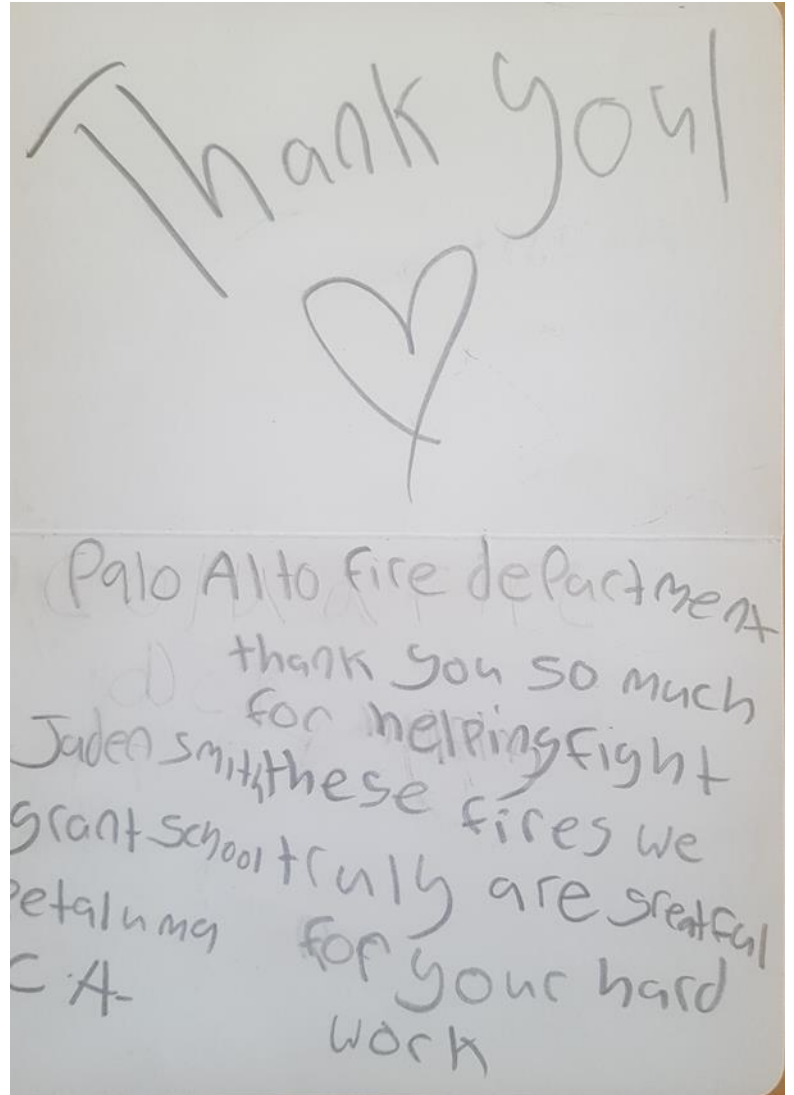 Thank you!
Palo Alto fire department
thank you so much
for helping fight
these fires we
truly are greatful
for your hard
work
Jaden Smith
grant school
petaluma
CA